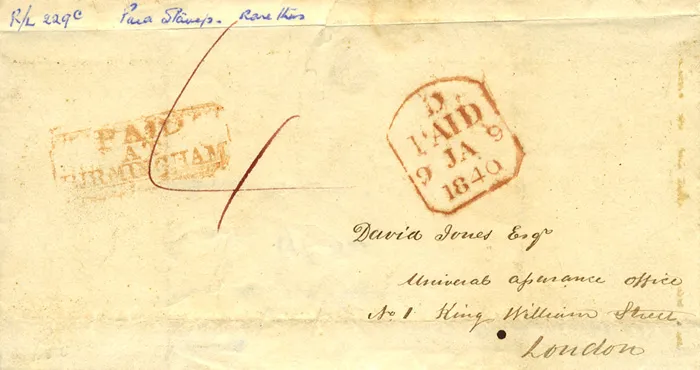 R/L 229c Paid Stamps. Rare thus
4
PAID
AT
BIRMINGHAM
D
PAID
9 JA 9
1840
David Jones Esqr
Universal aſsurance office
No 1 King William Street
London